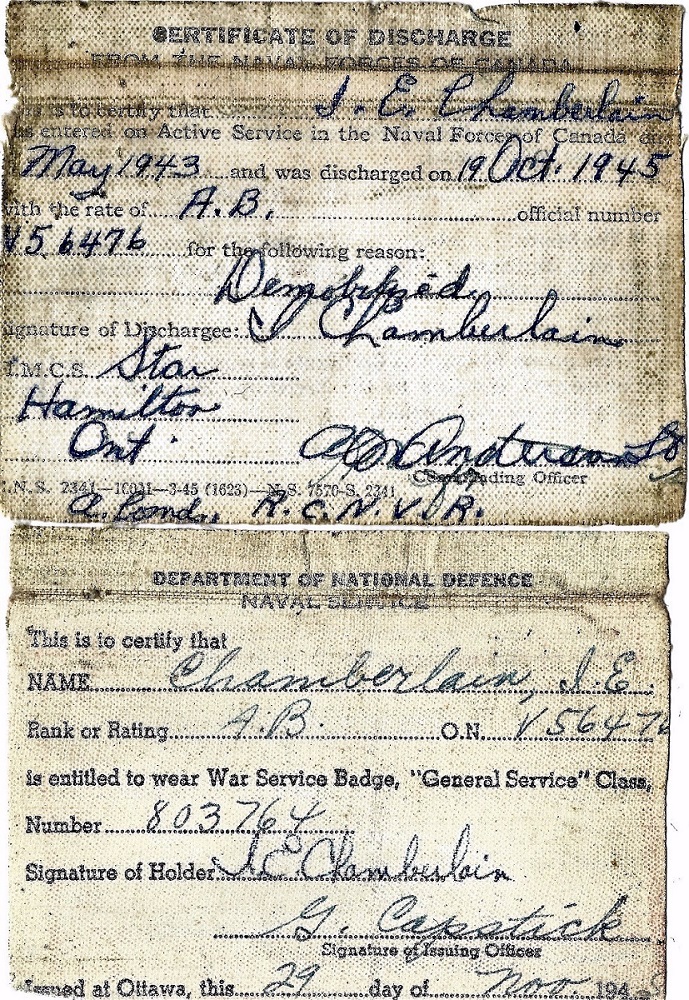 CERTIFICATE OF DISCHARGE
FROM THE NAVAL FORCES OF CANADA
is to certify that I. E. Chamberlain
entered on Active Service in the Naval Forces of Canada on
May 1943 and was discharged on 19 Oct. 1945
with the rate of A.B. official number
V56476 for the following reason:
Demobilized
Signature of Dischargee: I Chamberlain
H.M.C.S. Star
Hamilton
Ont.
Anderson
Commanding Officer
N.S. 2341—10031—3-45 (1623)—N.S. 7570-S. 2341
R.C.N.V.R.
DEPARTMENT OF NATIONAL DEFENCE
NAVAL SERVICE
This is to certify that
NAME Chamberlain, I.E.
Rank or Rating A.B. O.N. V56476
is entitled to wear War Service Badge, "General Service" Class,
Number 803764
Signature of Holder I E Chamberlain
G. Capstick
Signature of Issuing Officer
Issued at Ottawa, this 29 day of Nov 194